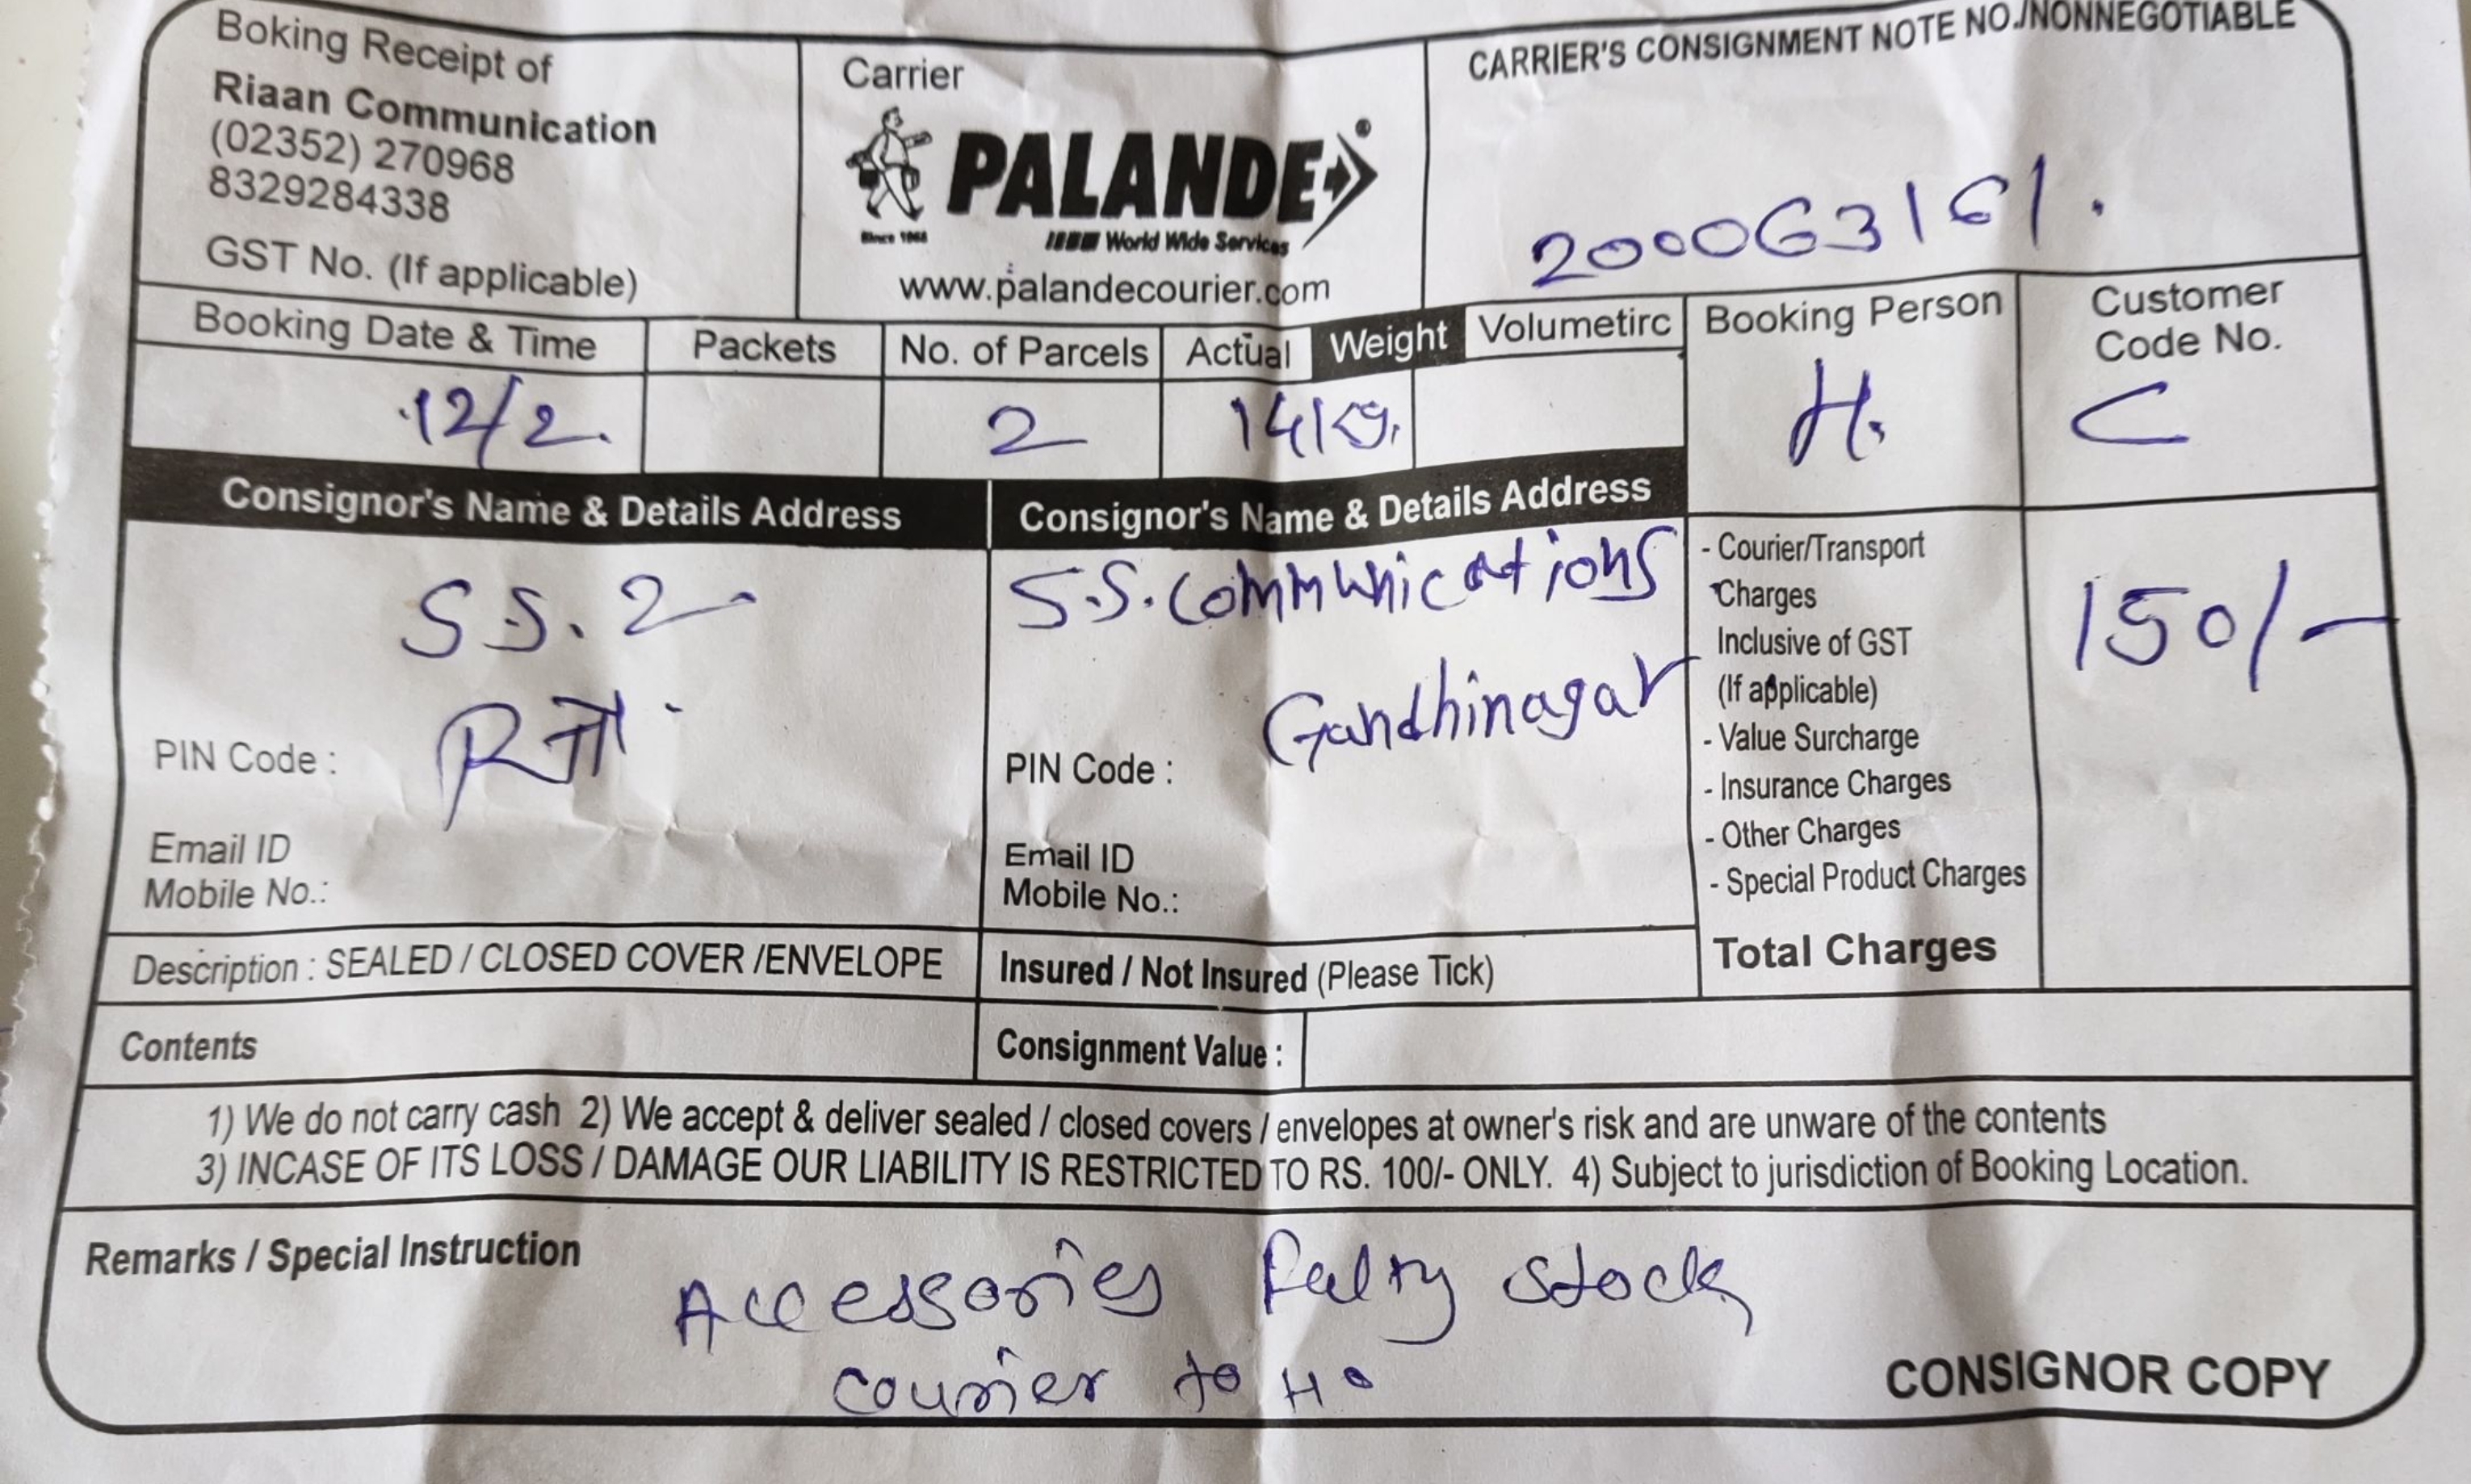 Boking Receipt of
Riaan Communication
(02352) 270968
8329284338
GST No. (If applicable)
Carrier
PALANDE
Since 1968
World Wide Services
www.palandecourier.com
CARRIER'S CONSIGNMENT NOTE NO./NONNEGOTIABLE
200063161.
Booking Date & Time
12/2.
Packets
No. of Parcels
2
Actual Weight Volumetirc
Booking Person
H.
Customer
Code No.
C
Consignor's Name & Details Address
S.S. 2
PIN Code :
Email ID
Mobile No.:
Consignor's Name & Details Address
S.S. Communications
Gandhinagar
PIN Code :
Email ID
Mobile No.:
- Courier/Transport
Charges
Inclusive of GST
(If applicable)
- Value Surcharge
- Insurance Charges
- Other Charges
- Special Product Charges
Total Charges
150/-
Description : SEALED / CLOSED COVER /ENVELOPE
Insured / Not Insured (Please Tick)
Contents
Consignment Value :
1) We do not carry cash 2) We accept & deliver sealed / closed covers / envelopes at owner's risk and are unware of the contents
3) INCASE OF ITS LOSS / DAMAGE OUR LIABILITY IS RESTRICTED TO RS. 100/- ONLY. 4) Subject to jurisdiction of Booking Location.
Remarks / Special Instruction
Accessories Falty stock
courier to Ho
CONSIGNOR COPY